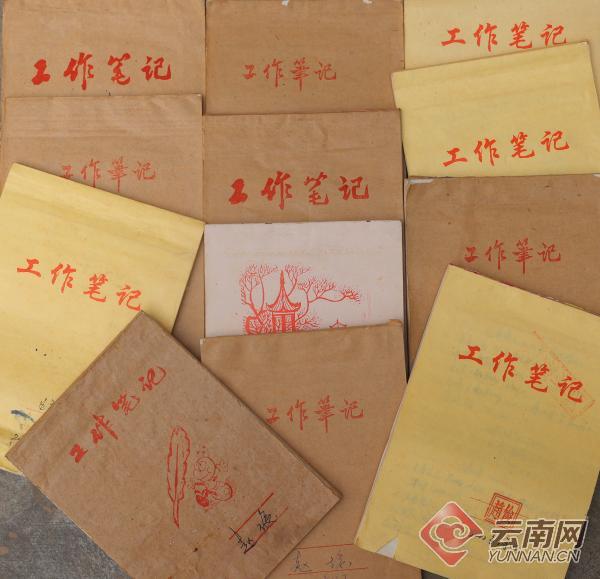 工作笔记
工作筆记
工作笔记
工作笔记
工作筆记
工作笔记
工作筆记
工作笔记
工作笔记
工作笔记
工作筆记
赵
赵
云南网
YUNNAN.CN